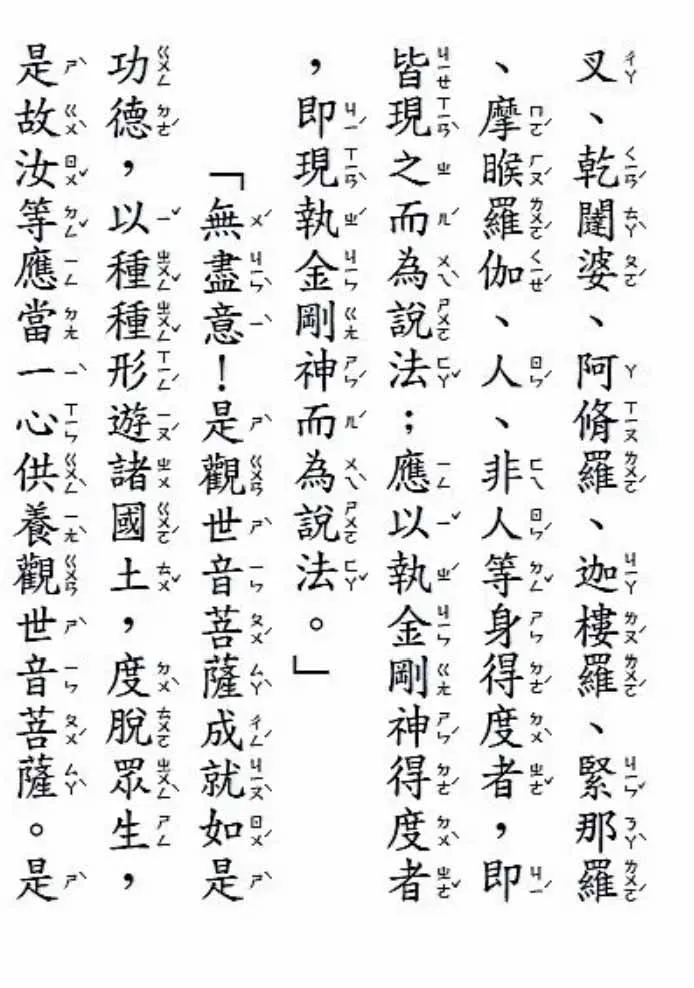 叉、乾闥婆、阿脩羅、迦樓羅、緊那羅
、摩睺羅伽、人、非人等身得度者，即
皆現之而為說法；應以執金剛神得度者
，即現執金剛神而為說法。」
「無盡意！是觀世音菩薩成就如是
功德，以種種形遊諸國土，度脫眾生，
是故汝等應當一心供養觀世音菩薩。是